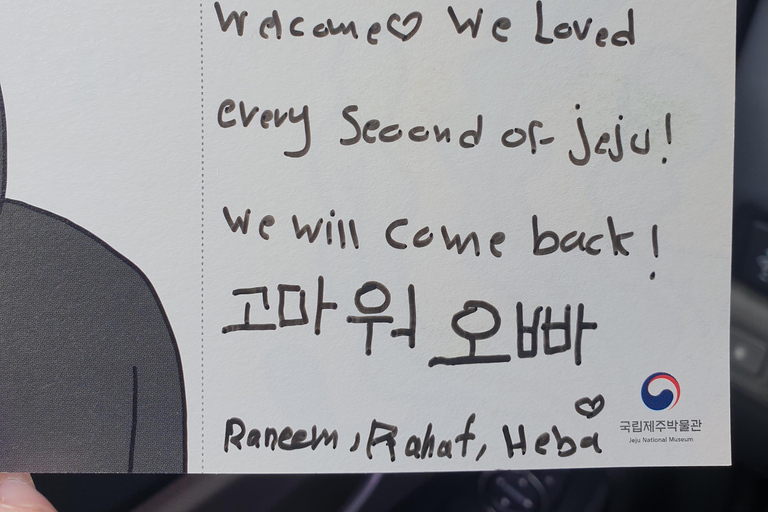 Welcome♡ We Loved
every Second of jeju!
We will come back!
고마워 오빠
Raneem, Rahaf, Heba♡
국립제주박물관
Jeju National Museum